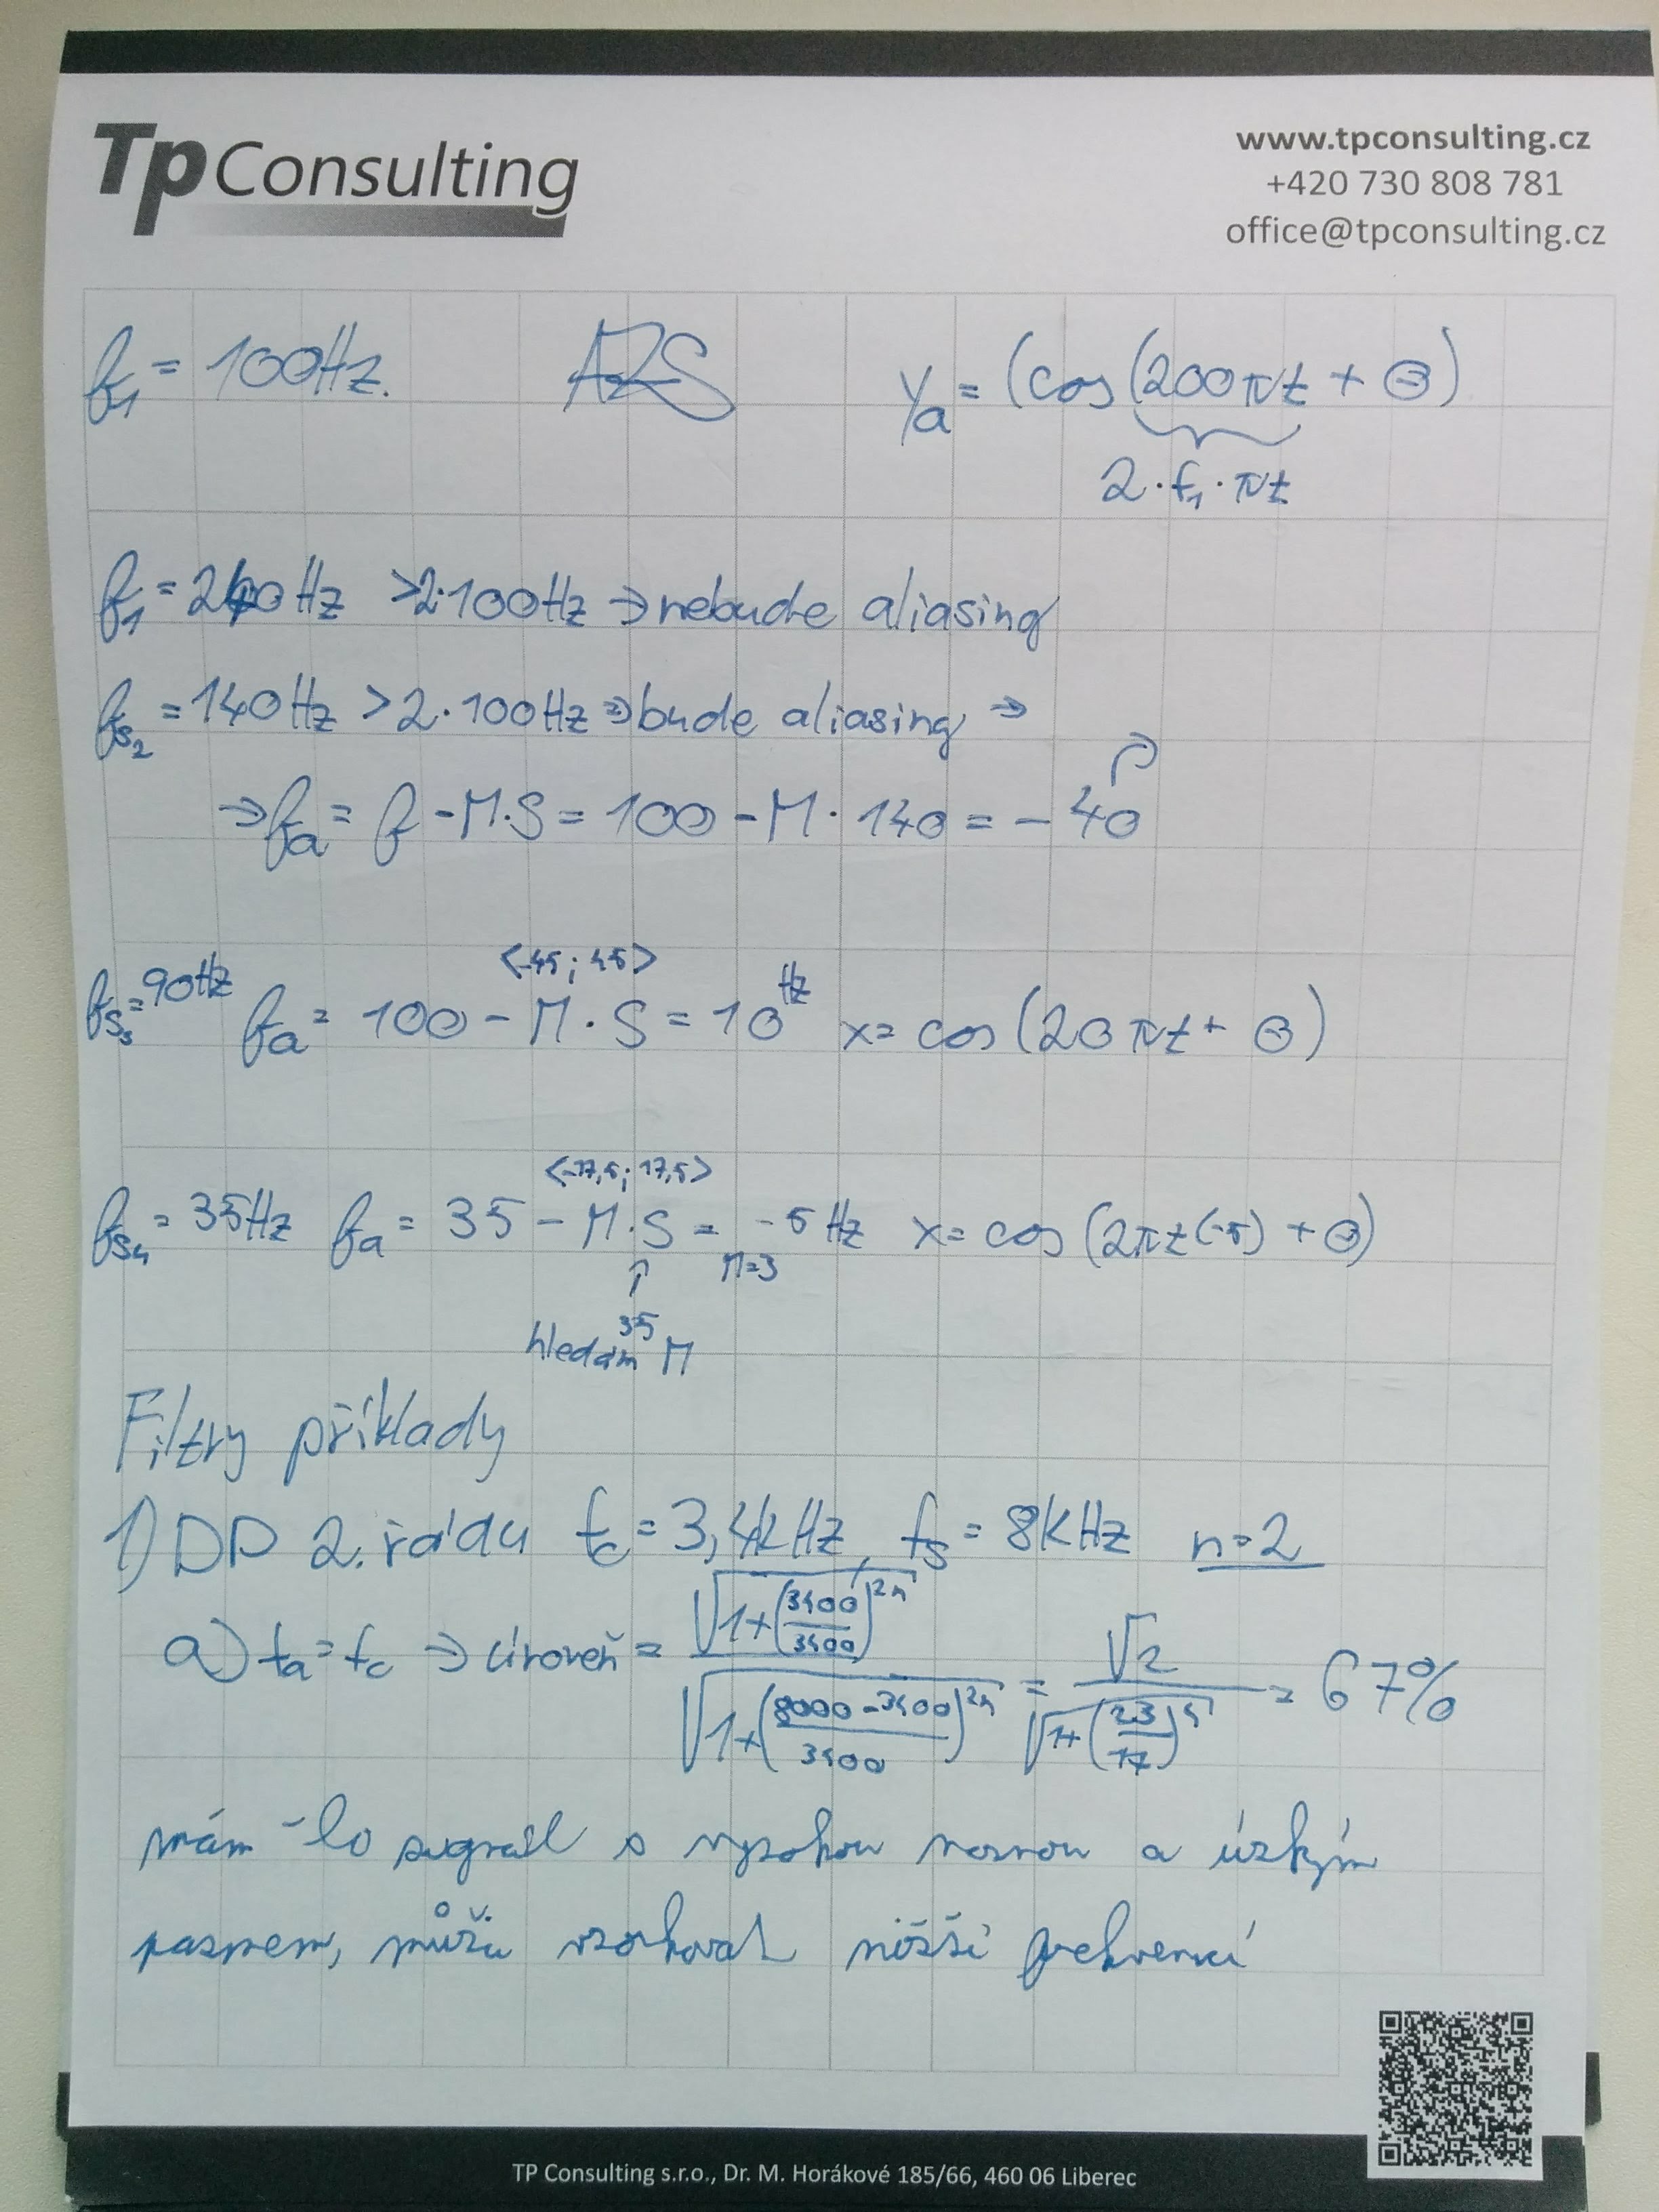 Tp Consulting
www.tpconsulting.cz
+420 730 808 781
office@tpconsulting.cz
f₁ = 100Hz. AZS yₐ = (cos(200πt + Θ)
2·f₁·πt
f₁ = 240Hz >2·100Hz ⇒ nebude aliasing
fs₂ = 140Hz > 2·100Hz ⇒ bude aliasing ⇒
⇒ fₐ = f - M·S = 100 - M·140 = -40
<-45; 45>
fs₃ = 90Hz fₐ = 100 - M·S = 10 Hz x = cos(20πt + Θ)
<-17,5; 17,5>
fs₄ = 35Hz fₐ = 35 - M·S = -5 Hz x = cos(2πt(-5) + Θ)
M=3
↑
35
hledám M
Filtry příklady
1) DP 2. řádu fc = 3,4kHz, fs = 8kHz n=2
a) fa = fc ⇒ úroveň = √(1+(3400/3400)²ⁿ) / √(1+((8000-3400)/3400)²ⁿ) = √2 / √(1+(23/17)⁴) = 67%
mám-lo signál s vysokou nosnou a úzkým
pasmem, můžu vzorkovat nižší frekvencí
TP Consulting s.r.o., Dr. M. Horákové 185/66, 460 06 Liberec